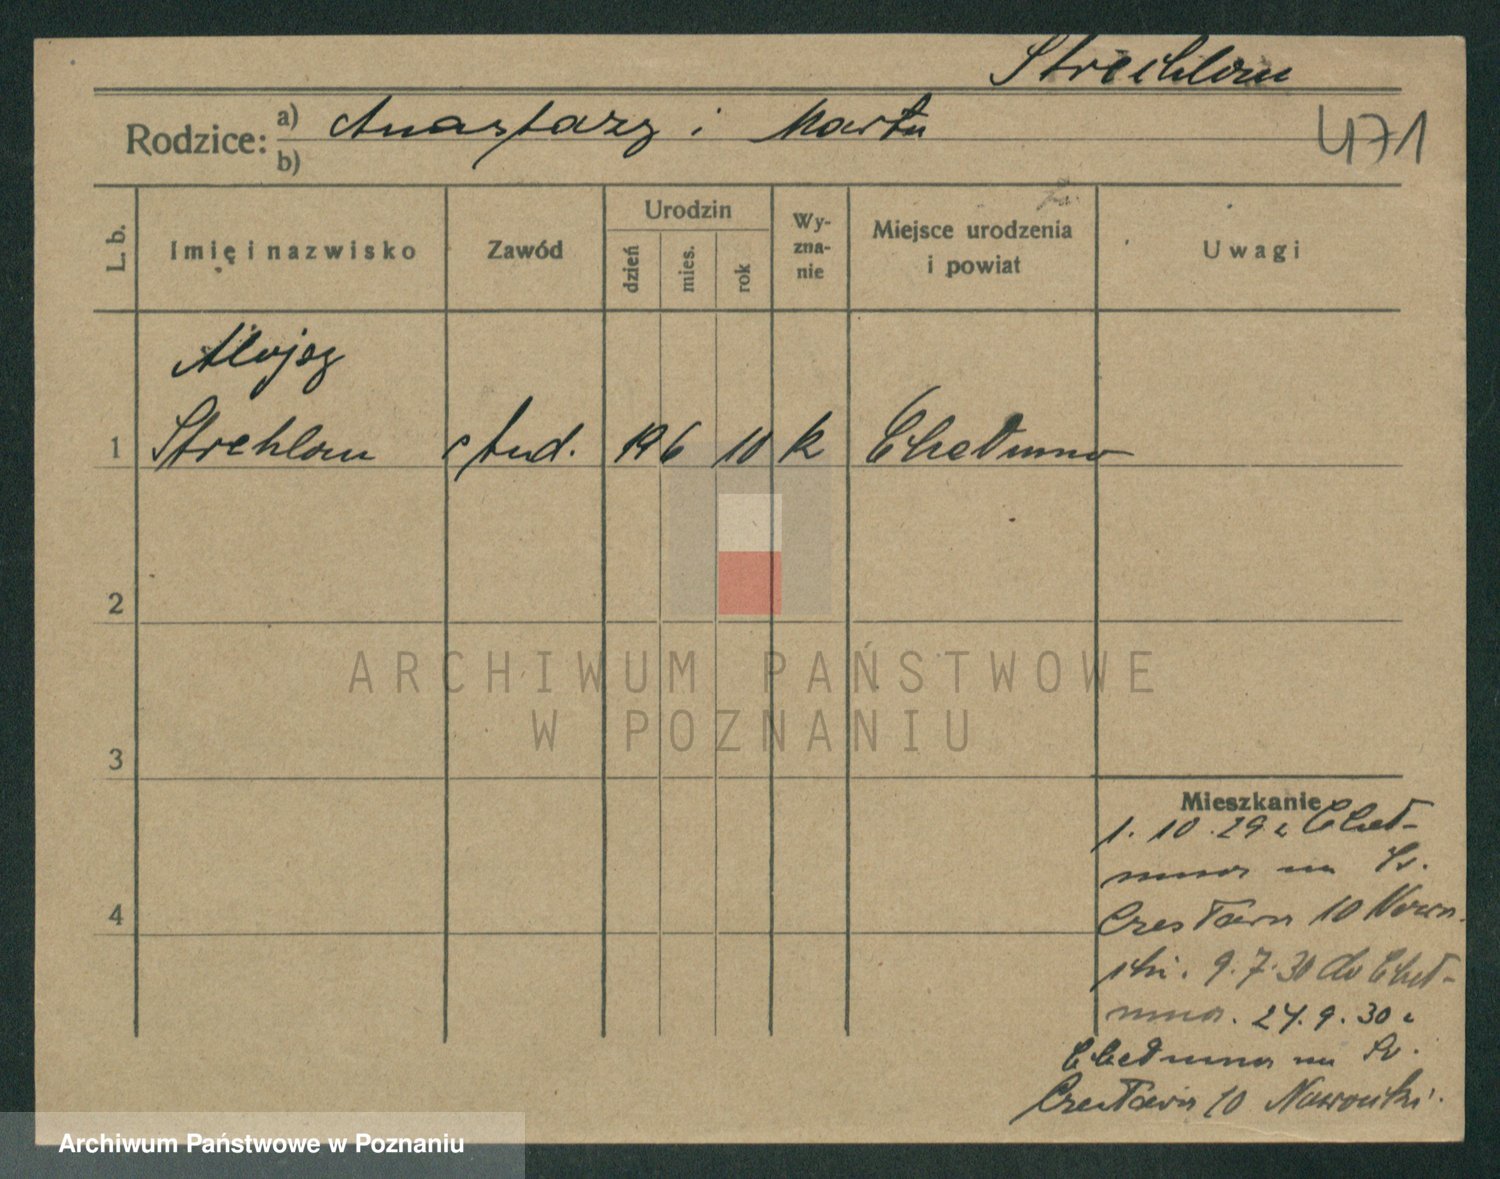 Strehlau
Rodzice: a) Anastazy i Marta
b)
471
L. b.
Imię i nazwisko
Zawód
Urodzin
dzień
mies.
rok
Wy-
zna-
nie
Miejsce urodzenia
i powiat
Uwagi
Alojzy
1 Strehlau stud. 19 6 10 k Chełmno
2
3
4
Mieszkanie
1. 10. 29 z Cheł-
mna na Św.
Czesława 10 Nowa
9. 7. 30 do Cheł-
mna. 24. 9. 30 z
Chełmna na Św.
Czesława 10 Nowowski.
ARCHIWUM PAŃSTWOWE
W POZNANIU
Archiwum Państwowe w Poznaniu